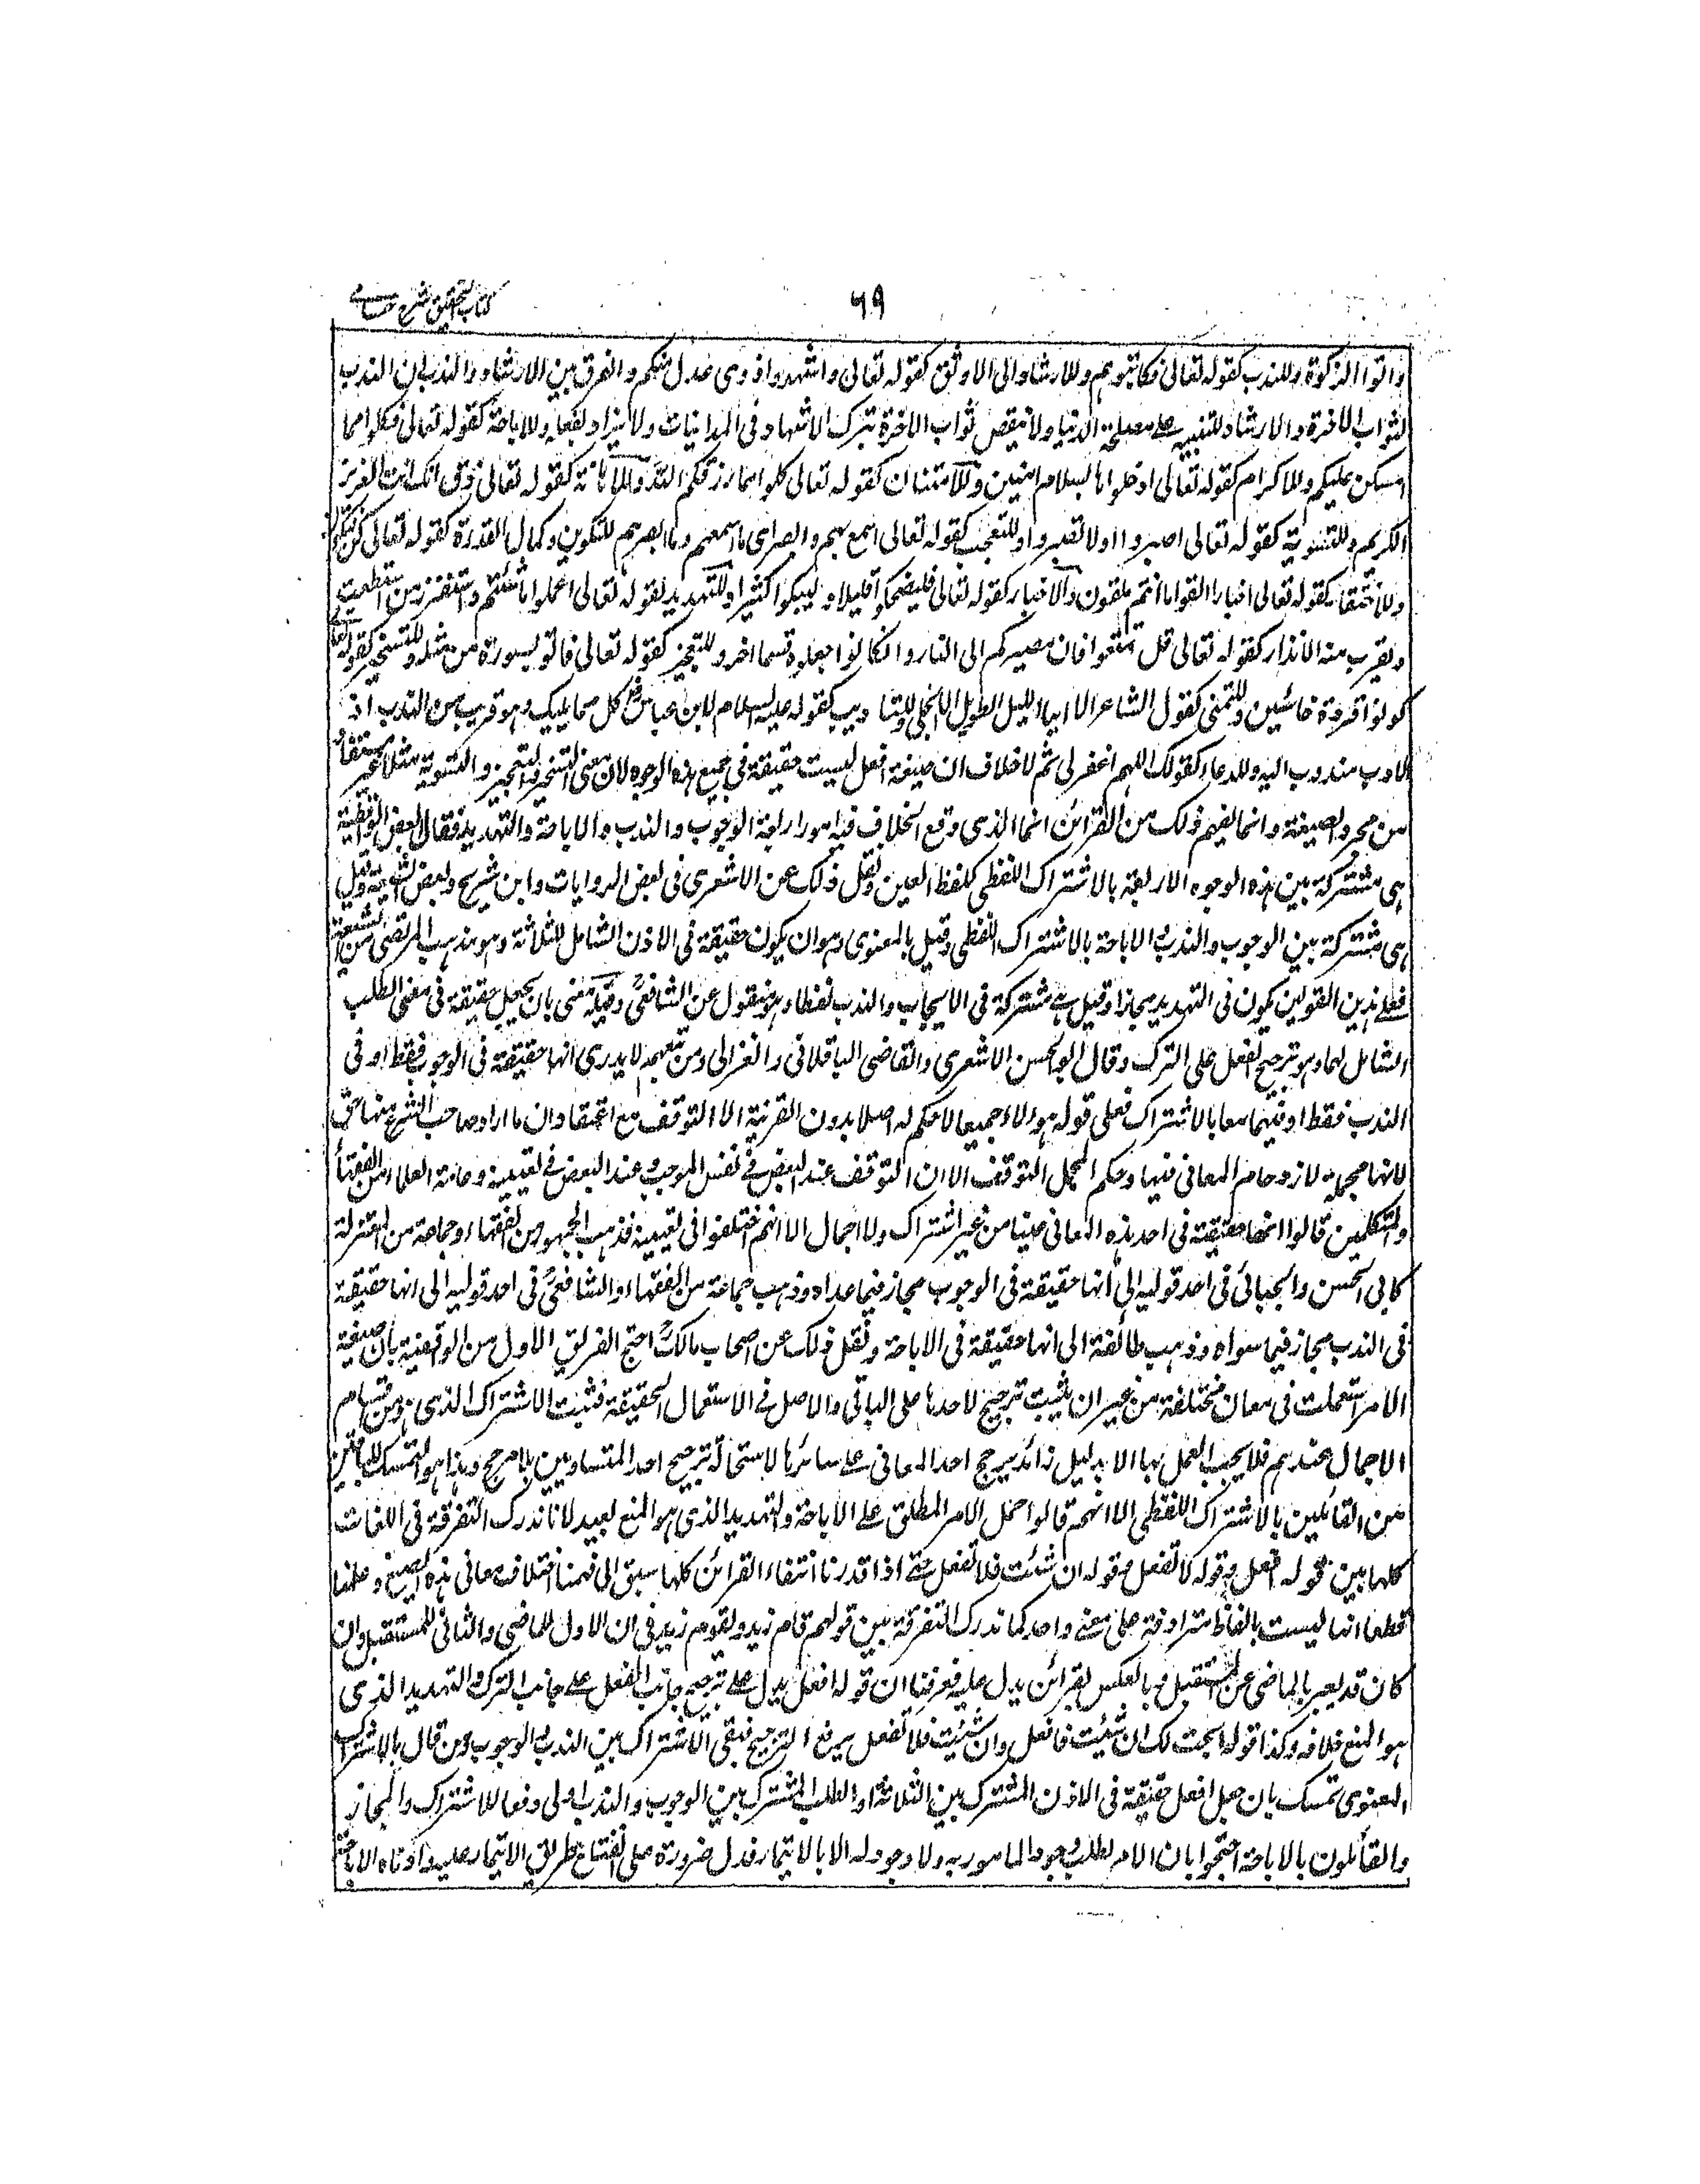 كتاب التحقيق شرح حسامي
٦٩
واتوا الزكوة وللندب كقوله تعالى فكاتبوهم وللارشاد الى الاوثق كقوله تعالى واشهدوا ذوى عدل منكم والفرق بين الارشاد والندب ان الندب
لثواب الاخرة والارشاد للتنبيه على مصلحة الدنيا ولا ينقص ثواب الاخرة بترك الاشهاد فى المداينات ولا يزاد بفعله وللاباحة كقوله تعالى فكلوا مما
امسكن عليكم وللاكرام كقوله تعالى ادخلوها بسلام امنين وللامتنان كقوله تعالى كلوا مما رزقكم الله وللاهانة كقوله تعالى ذق انك انت العزيز
الكريم وللتسوية كقوله تعالى اصبروا اولا تصبروا وللتعجب كقوله تعالى اسمع بهم وابصر اى ما اسمعهم وما ابصرهم للتكوين وكمال القدرة كقوله تعالى كن فيكون
وللاحتقار كقوله تعالى اخبارا القوا ما انتم ملقون وللاخبار كقوله تعالى فليضحكوا قليلا وليبكوا كثيرا وللتهديد كقوله تعالى اعملوا ما شئتم واستفزز من استطعت
ويقرب منه الانذار كقوله تعالى قل تمتعوا فان مصيركم الى النار وان كانوا جعلوه قسما اخر وللتعجيز كقوله تعالى فاتوا بسورة من مثله وللتسخير كقوله تعالى
كونوا قردة خاسئين وللتمنى كقول الشاعر الا ايها الليل الطويل الا انجلى وللتاديب كقوله عليه السلام لابن عباس كل مما يليك وهو قريب من الندب اذ
الادب مندوب اليه وللدعاء كقولك اللهم اغفر لى ثم لا خلاف ان صيغة افعل ليست حقيقة فى جميع هذه الوجوه لان معنى التسخير والتعجيز والتسوية مثلا غير مستفاد
من مجرد الصيغة وانما يفهم ذلك من القرائن انما الذى وقع الخلاف فيه امور اربعة الوجوب والندب والاباحة والتهديد فقال بعض الواقفية
هى مشتركة بين هذه الوجوه الاربعة بالاشتراك اللفظى كلفظ العين ونقل ذلك عن الاشعرى فى بعض الروايات وابن شريح وبعض الشيعة وقيل
هى مشتركة بين الوجوب والندب والاباحة بالاشتراك اللفظى وقيل بالمعنوى وهو ان يكون حقيقة فى الاذن الشامل للثلاثة وهو مذهب المرتضى من الشيعة
فعلى هذين القولين يكون فى التهديد مجازا وقيل هى مشتركة فى الايجاب والندب لفظا وهو منقول عن الشافعى وقيل معنى بان يجعل حقيقة فى معنى الطلب
الشامل لهما وهو ترجيح الفعل على الترك وقال ابو الحسن الاشعرى والقاضى الباقلانى والغزالى ومن تبعهم لا يدرى انها حقيقة فى الوجوب فقط او فى
الندب فقط او فيهما معا بالاشتراك فعلى قول هولاء جميعا لا حكم له اصلا بدون القرينة الا التوقف مع اعتقاد ان ما اراد صاحب الشرع منها حق
لانها مجملة لازدحام المعانى فيها وحكم المجمل التوقف الا ان التوقف عند البعض فى نفس الموجب وعند البعض فى تعيينه وعامة العلماء من الفقهاء
والمتكلمين قالوا انها حقيقة فى احد هذه المعانى عينا من غير اشتراك ولا اجمال الا انهم اختلفوا فى تعيينه فذهب الجمهور من الفقهاء وجماعة من المعتزلة
كابى الحسن والجبائى فى احد قوليه الى انها حقيقة فى الوجوب مجاز فيما عداه وذهب جماعة من الفقهاء والشافعى فى احد قوليه الى انها حقيقة
فى الندب مجاز فيما سواه وذهب طائفة الى انها حقيقة فى الاباحة ونقل ذلك عن اصحاب مالك احتج الفريق الاول من الواقفية بان صيغة
الامر استعملت فى معان مختلفة من غير ان يثبت ترجيح لاحدها على الباقى والاصل فى الاستعمال الحقيقة فثبت الاشتراك الذى هو من اقسام
الاجمال عندهم فلا يجب العمل بها الا بدليل زائد يرجح احد المعانى على سائرها لاستحالة ترجيح احد المتساويين بلا مرجح وهذا هو المتمسك للباقين
من القائلين بالاشتراك اللفظى الا انهم قالوا حمل الامر المطلق على الاباحة والتهديد الذى هو المنع بعيد لانا ندرك التفرقة فى اللغات
كلها بين قوله افعل وقوله لا تفعل وقوله ان شئت فلا تفعل حتى اذا قدرنا انتفاء القرائن كلها سبق الى فهمنا اختلاف معانى هذه الصيغ وعلمنا
قطعا انها ليست بالفاظ مترادفة على معنى واحد كما ندرك التفرقة بين قولهم قام زيد ويقوم زيد فى ان الاول للماضى والثانى للمستقبل وان
كان قد يعبر بالماضى عن المستقبل وبالعكس لقرائن يدل عليه فعرفنا ان قوله افعل يدل على ترجيح جانب الفعل على جانب الترك والتهديد الذى
هو المنع خلافه وكذا قوله ابحت لك ان شئت فافعل وان شئت فلا تفعل يرفع الترجيح فبقى الاشتراك بين الندب والوجوب ومن قال بالاشتراك
المعنوى تمسك بان جعل افعل حقيقة فى الاذن المشترك بين الثلاثة او الطلب المشترك بين الوجوب والندب اولى دفعا للاشتراك والمجاز
والقائلون بالاباحة احتجوا بان الامر لطلب وجود المامور به ولا وجود له الا بالايتمار فدل ضرورة على انفتاح طريق الايتمار عليه وادناه الاباحة